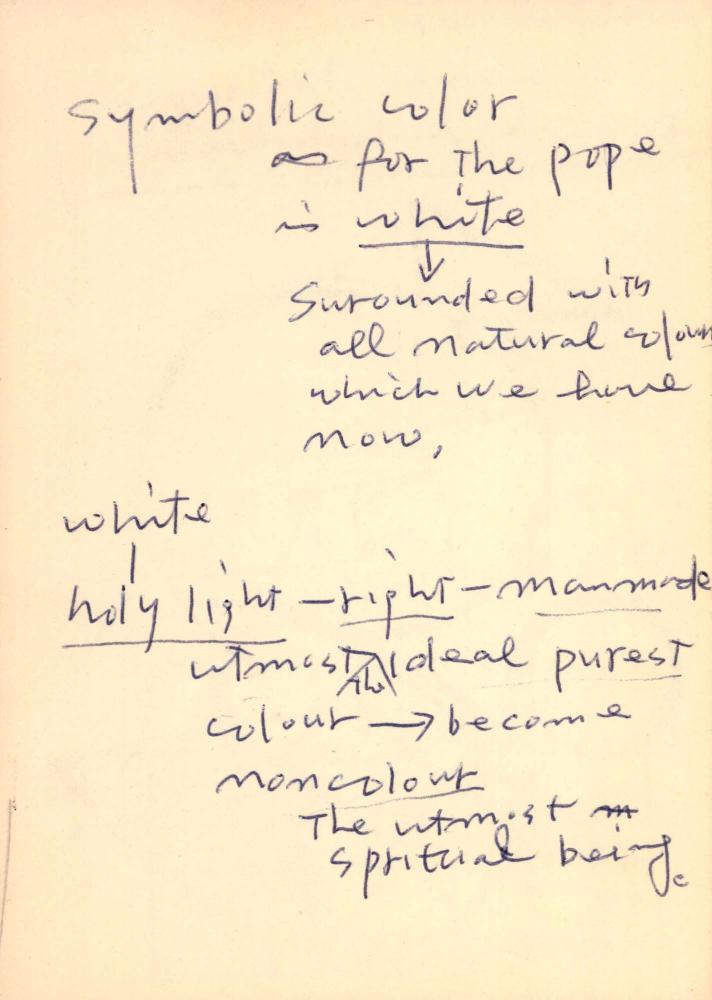 symbolic color
as for the pope
is white
Surounded with
all natural colour
which we have
now,
white
holy light - right - manmade
utmost ideal purest
the
colour → become
noncolour
The utmost
spritual being.